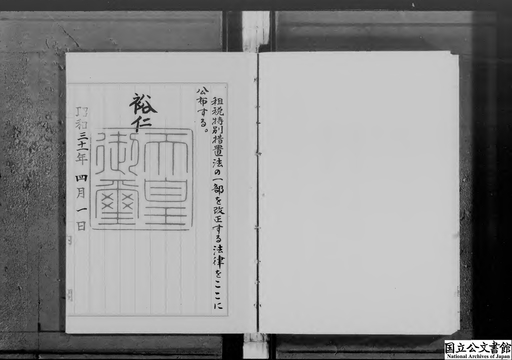 租税特別措置法の一部を改正する法律をここに
公布する。
裕仁
天皇
御璽
昭和三十一年四月一日
国立公文書館
National Archives of Japan